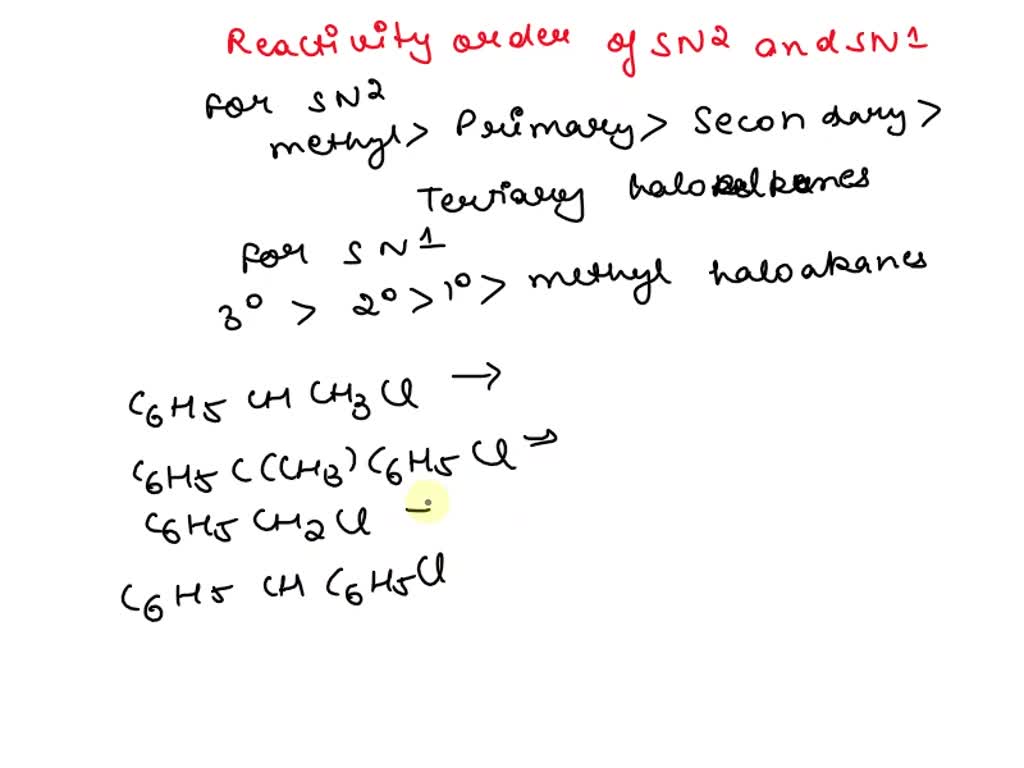 Reactivity order of SN2 and SN1
For SN2
methyl > Primary > Secondary >
Tertiary
For SN1
3° > 2° > 1° > methyl haloakanes
C6H5 CH CH3 Cl →
C6H5 C(CH3) C6H5 Cl ⇒
C6H5 CH2 Cl –
C6H5 CH C6H5 Cl